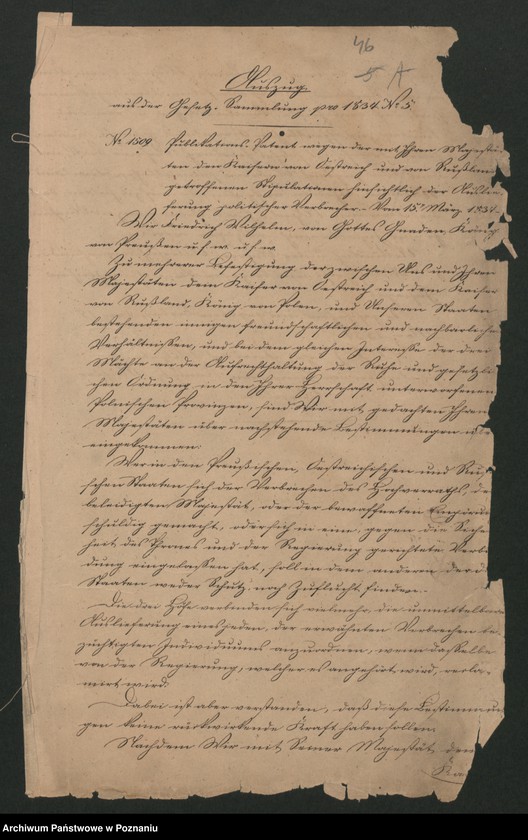 46
5 A
Auszug
aus der Gesetz-Sammlung pro 1834 No 5.
No 1509. Publikations-Patent wegen der mit Ihren Majestä-
ten den Kaisern von Oestreich und von Rußland
getroffenen Stipulationen hinsichtlich der Auslie-
ferung politischer Verbrecher. Vom 15. März 1834.
Wir Friedrich Wilhelm, von Gottes Gnaden, König
von Preußen u. s. w. u. s. w.
Zu mehrerer Befestigung der zwischen Uns und Ihren
Majestäten dem Kaiser von Oestreich und dem Kaiser
von Rußland, König von Polen, und Unseren Staaten
bestehenden innigen freundschaftlichen und nachbarlichen
Verhältnissen, und bei dem gleichen Interesse der drei
Mächte an der Aufrechthaltung der Ruhe und gesetzli-
chen Ordnung in den Ihrer Herrschaft unterworfenen
Polnischen Provinzen, sind Wir mit gedachten Ihren
Majestäten über nachstehende Bestimmungen übe
eingekommen:
Wer in den Preußischen, Oestreichischen und Rus-
schen Staaten sich der Verbrechen des Hochverraths, der
beleidigten Majestät, oder der bewaffneten Empörung
schuldig gemacht, oder sich in eine, gegen die Sicher
heit des Thrones und der Regierung gerichtete Verbin
dung eingelassen hat, soll in dem anderen der drei
Staaten weder Schutz noch Zuflucht finden.
Die drei Höfe verbinden sich vielmehr, die unmittelbare
Auslieferung eines jeden, der erwähnten Verbrechen be-
züchtigten Individuums anzuordnen, wenn dasselbe
von der Regierung, welcher es angehört wird, recla-
mirt wird.
Dabei ist aber verstanden, daß diese Bestimmun
gen keine rückwirkende Kraft haben sollen.
Nachdem Wir mit Seiner Majestät dem
Kai
Archiwum Państwowe w Poznaniu